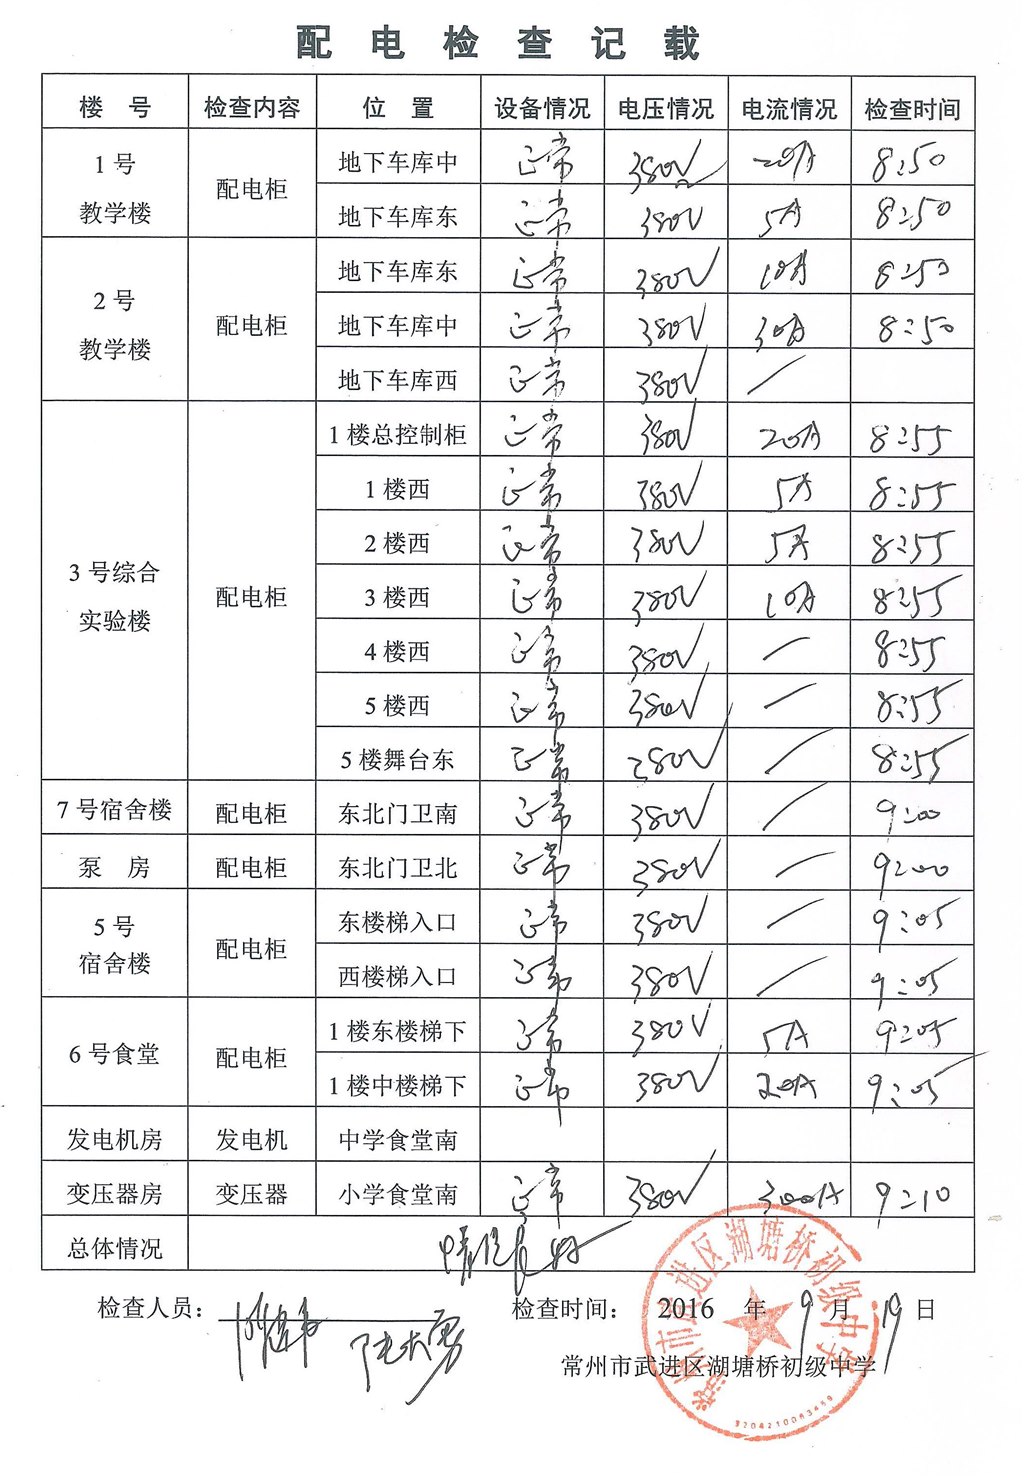 配电检查记载
楼号 检查内容 位置 设备情况 电压情况 电流情况 检查时间
1号教学楼 配电柜 地下车库中 正常 380V 20A 8:50
地下车库东 正常 380V 5A 8:50
2号教学楼 配电柜 地下车库东 正常 380V 10A 8:50
地下车库中 正常 380V 30A 8:50
地下车库西 正常 380V /
3号综合实验楼 配电柜 1楼总控制柜 正常 380V 20A 8:55
1楼西 正常 380V 5A 8:55
2楼西 正常 380V 5A 8:55
3楼西 正常 380V 10A 8:55
4楼西 正常 380V / 8:55
5楼西 正常 380V / 8:55
5楼舞台东 正常 380V / 8:55
7号宿舍楼 配电柜 东北门卫南 正常 380V / 9:00
泵房 配电柜 东北门卫北 正常 380V / 9:00
5号宿舍楼 配电柜 东楼梯入口 正常 380V / 9:05
西楼梯入口 正常 380V / 9:05
6号食堂 配电柜 1楼东楼梯下 正常 380V 5A 9:05
1楼中楼梯下 正常 380V 20A 9:05
发电机房 发电机 中学食堂南
变压器房 变压器 小学食堂南 正常 380V 300A 9:10
总体情况 情况良好
检查人员： 检查时间： 2016 年 9 月 19 日
常州市武进区湖塘桥初级中学
常州市武进区湖塘桥初级中学